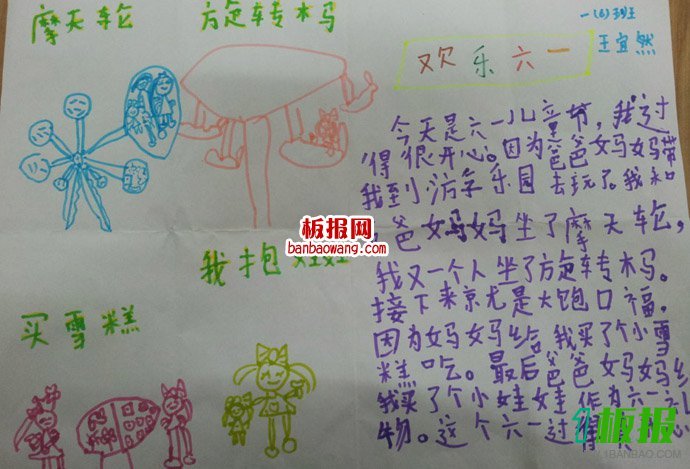 摩天轮
旋转木马
一(6)班王
王宜然
欢乐六一
今天是六一儿童节，我过
得很开心。因为爸爸妈妈带
我到游乐园去玩了。我和
，爸妈妈坐了摩天轮，
我又一个人坐了旋转木马。
接下来就是大饱口福。
因为妈妈给我买了个小雪
糕吃。最后爸爸妈妈
我买了个小娃娃作为六一礼
物。这个六一过得
心
板报网
banbaowang.com
我抱娃娃
买雪糕
板报
L1BANBAO.COM